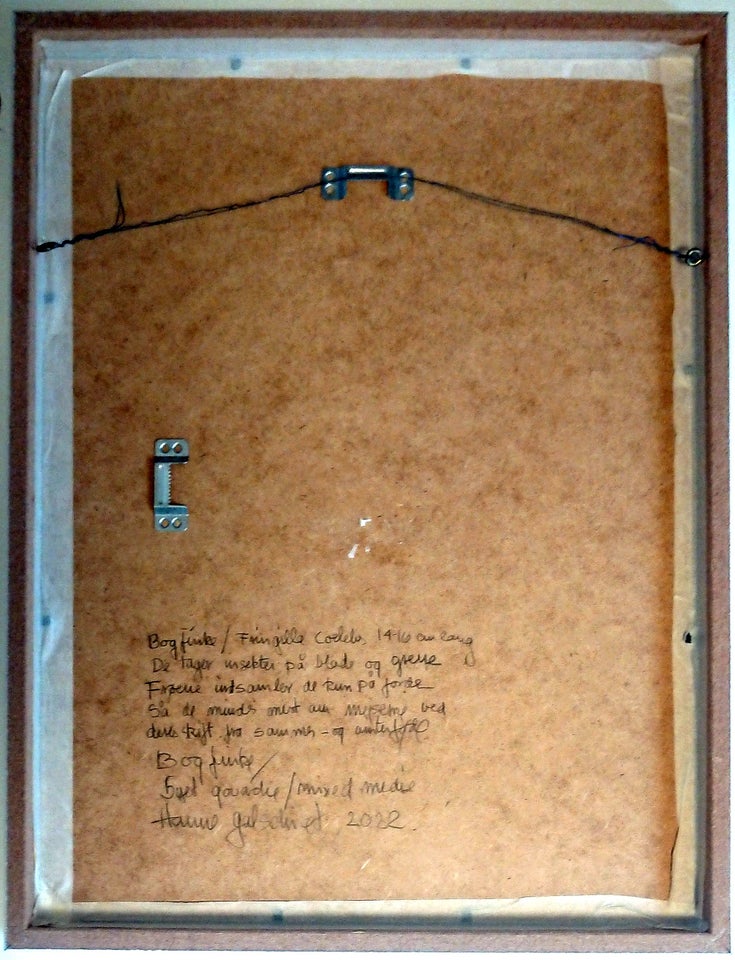 Bogfinke / Fringilla Coelebs, 14-16 cm lang
De tager insekter på blade og grene
Frøene indsamler de kun på jorde
Så de minds mest om myserne ved
deres skift fra sommer- og vinterføde
Bogfinke /
/ mixed media
Hanne 2022.